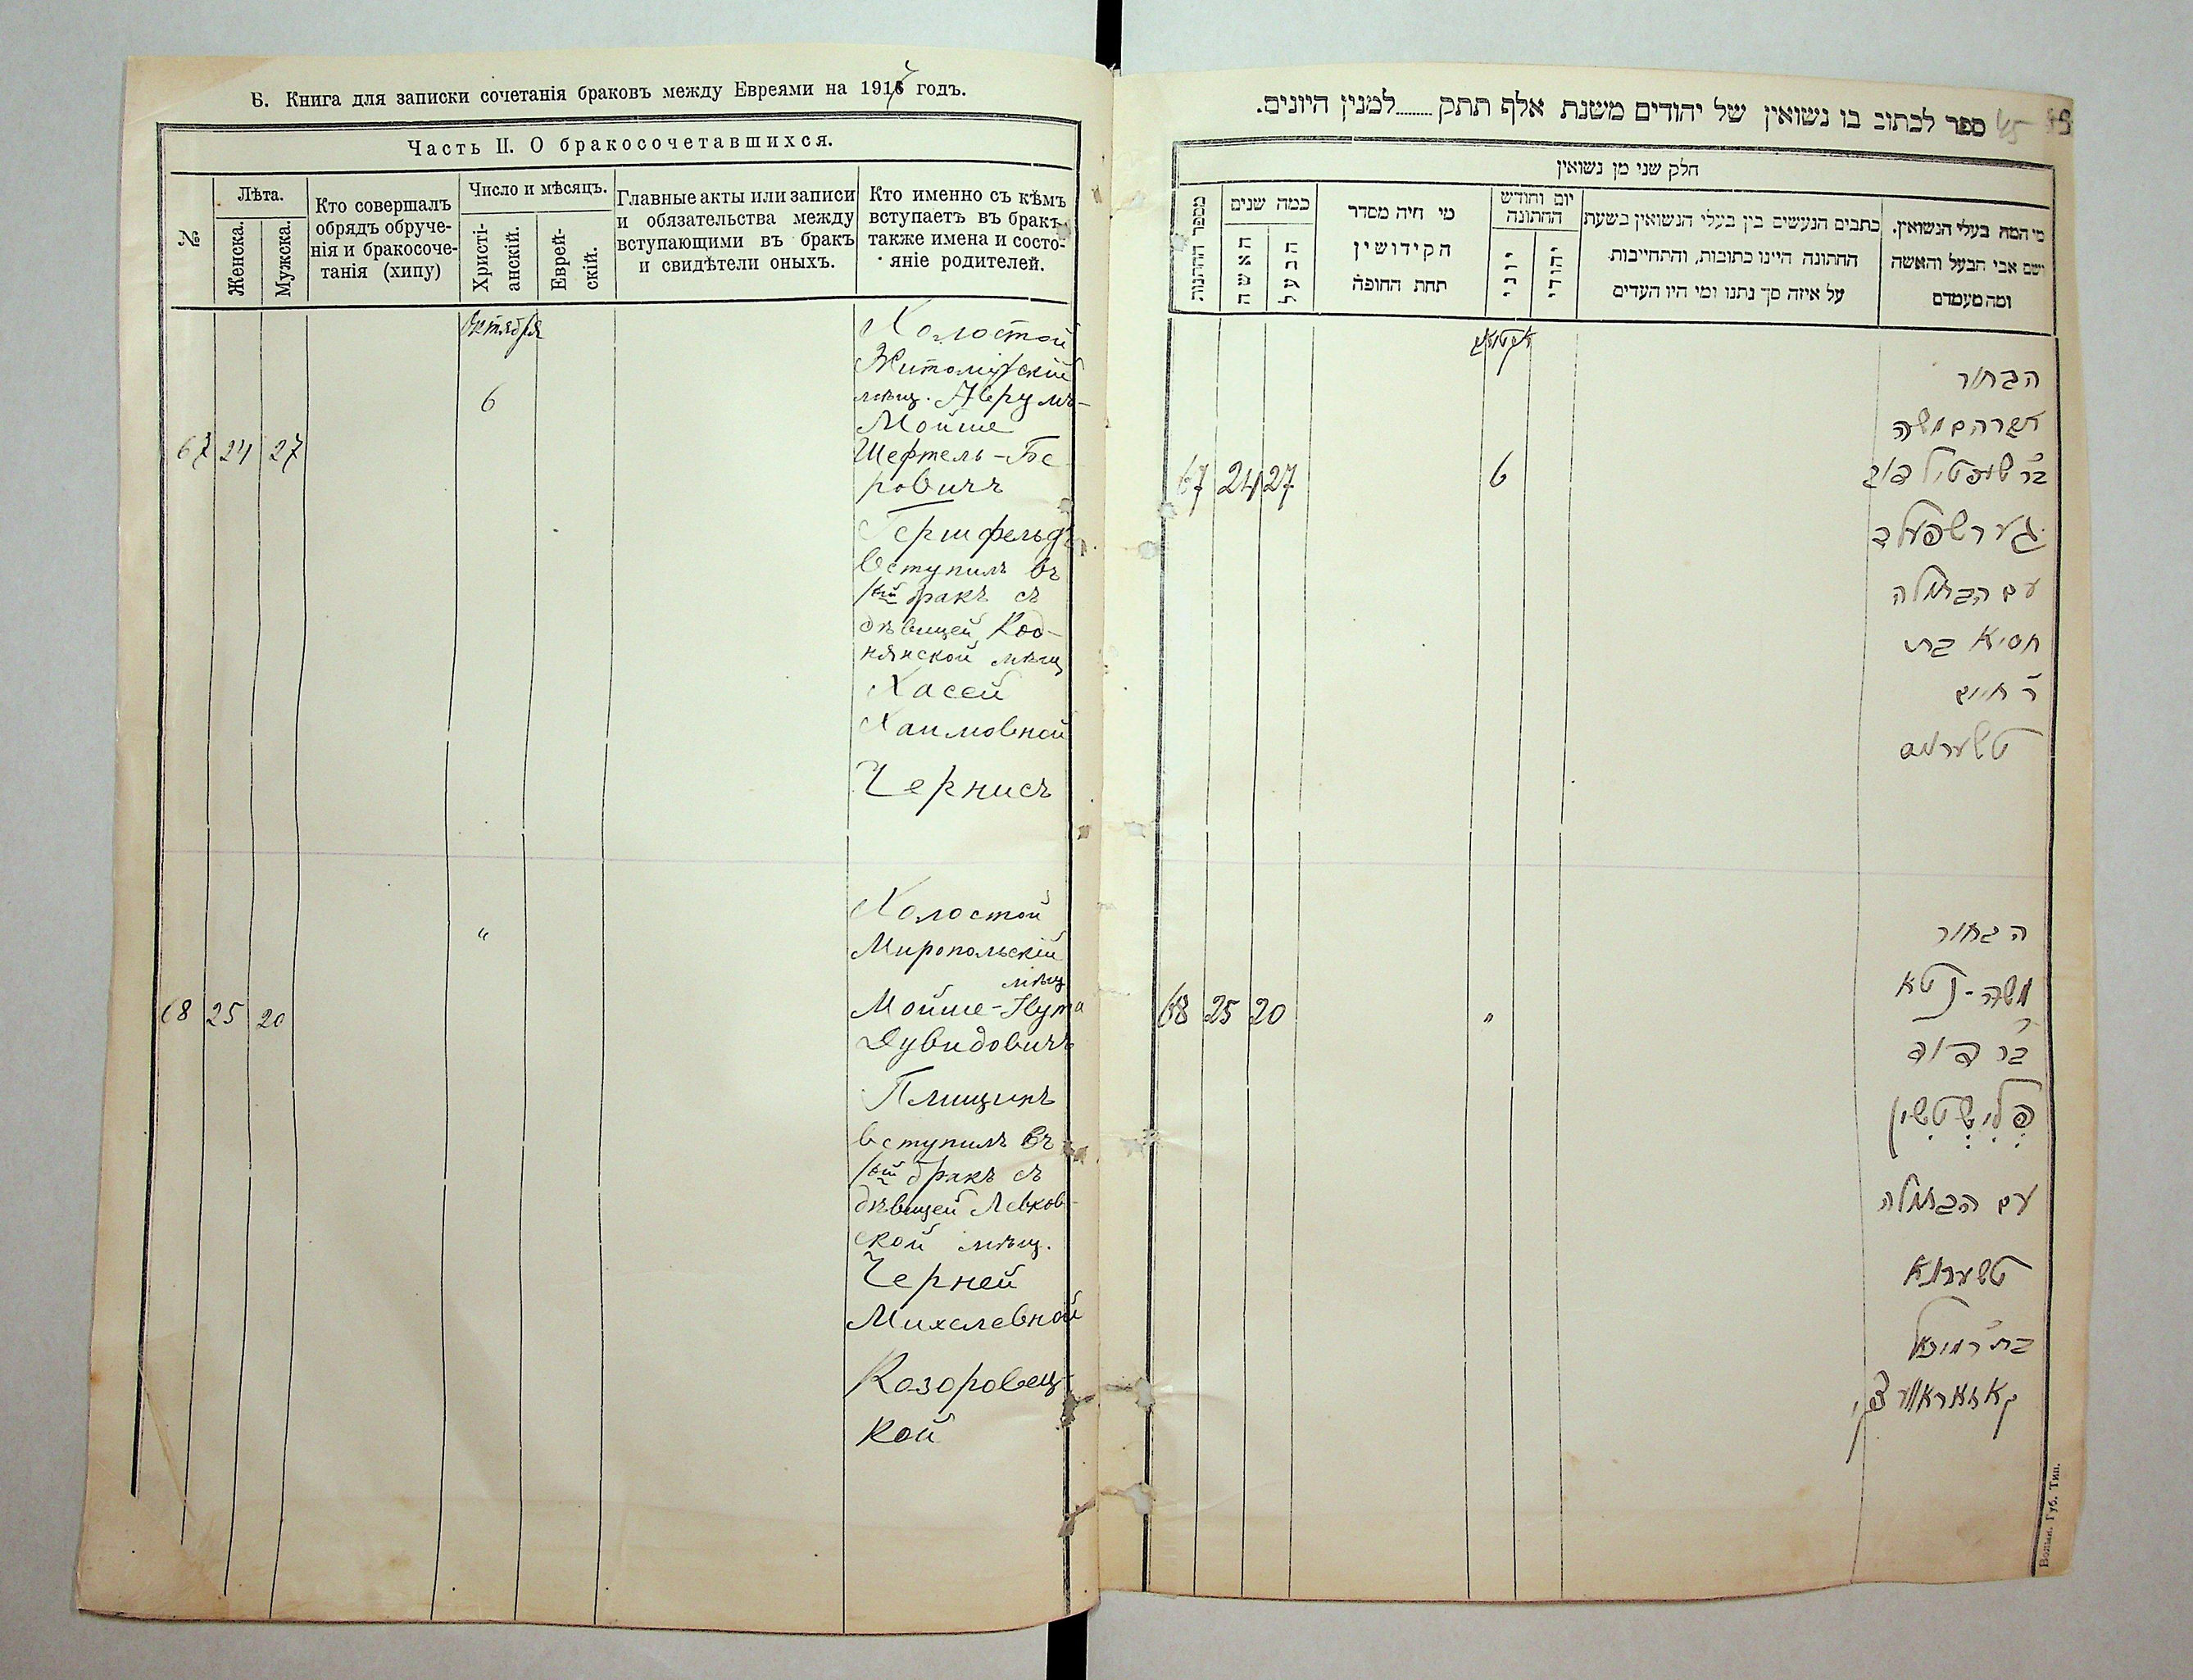 Б. Книга для записки сочетанія браковъ между Евреями на 1917 годъ.
Часть II. О бракосочетавшихся.
№
Лѣта.
Женска.
Мужска.
Кто совершалъ
обрядъ обруче-
нія и бракосоче-
танія (хипу)
Число и мѣсяцъ.
Христі-
анскій.
Еврей-
скій.
Главные акты или записи
и обязательства между
вступающими въ бракъ
и свидѣтели оныхъ.
Кто именно съ кѣмъ
вступаетъ въ бракъ,
также имена и состо-
яніе родителей.
Октября
6
67 24 27
Холостой
Житомірскій
мѣщ. Аврумъ-
Мойше
Шефтель-Бе
ровичъ
Гершфельдъ
вступилъ въ
1ый бракъ съ
дѣвицей Код-
нянской мѣщ
Хасей
Хаимовной
Чернисъ
"
68 25 20
Холостой
Миропольскій
мѣщ
Мойше-Нута
Дувидовичъ
Плищинъ
вступилъ въ
1ый бракъ съ
дѣвицей Левков-
ской мѣщ.
Черней
Михелевной
Козоровец-
кой
ספר לכתוב בו נשואין של יהודים משנת אלף תתק........למנין היונים.
45
חלק שני מן נשואין
מספר החתונות
כמה שנים
האשה
הבעל
מי היה מסדר
הקידושין
תחת החופה
יום וחודש
החתונה
יוני
יהודי
כתבים הנעשים בין בעלי הנשואין בשעת
החתונה היינו כתובות, והתחייבות
על איזה סך נתנו ומי היו העדים
מי המה בעלי הנשואין.
ושם אבי הבעל והאשה
ומה מעמדם
67 24 27
6
הבחור
אברהם משה
ב״ר שעפטיל דוב
גערשפעלד
עם הבתולה
חסיא בת
ר׳ חיים
טשערניס
68 25 20
"
הבחור
משה-נטא
ב״ר דוד
פלישטשין
עם הבתולה
טשערנא
בת ר׳ מיכאל
קאזאראוועצקי
Волын. Губ. Тип.